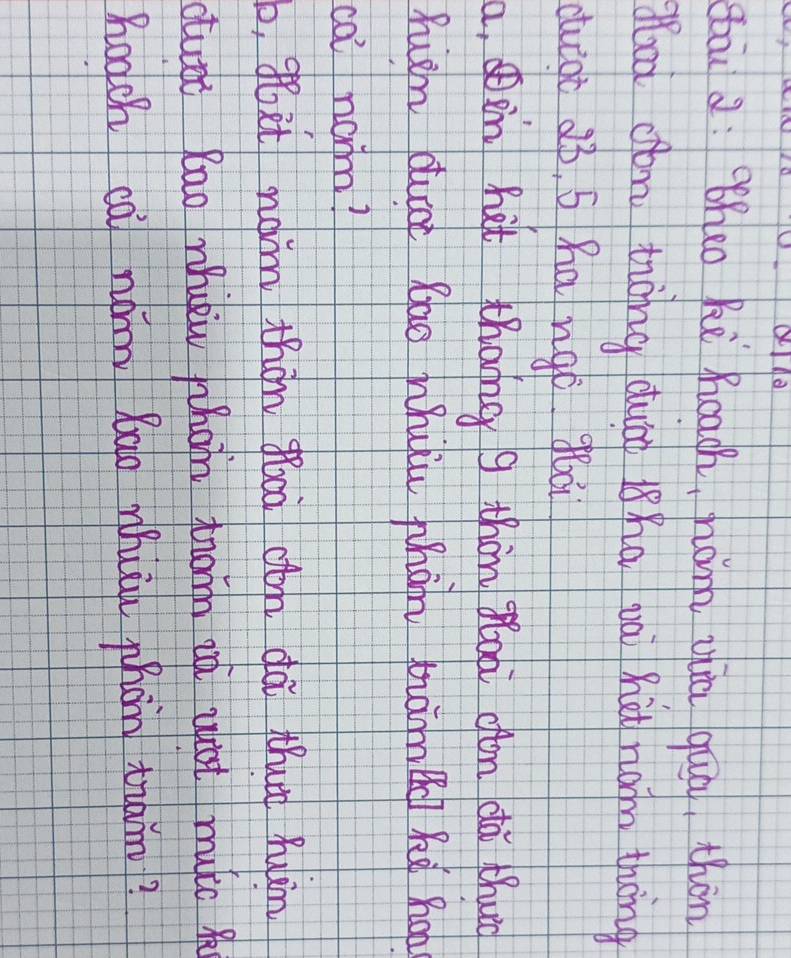 Bài 2: Theo kế hoạch, năm vừa qua, thôn
Hoà An trồng được 18ha và hết năm trồng
được 23,5 ha ngô. Hỏi
a, Đến hết tháng 9 thôn Hoà An đã thực
hiện được bao nhiêu phần trăm kế hoạ
cả năm?
b, Hết năm thôn Hoà An đã thực hiện
được bao nhiêu phần trăm và vượt mức k
hoạch cả năm bao nhiêu phần trăm?